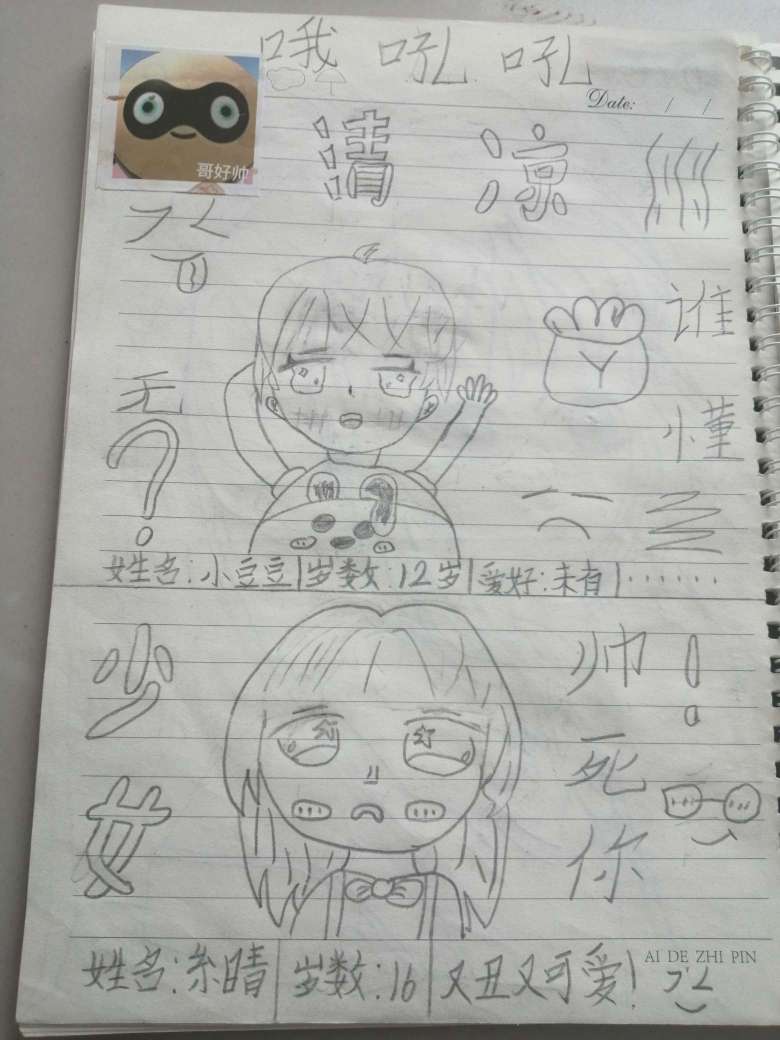 哦 吼 吼
Date: / /
哥好帅
清 凉
谁
无
小董
?
姓名:小豆豆|岁数:12岁|爱好:未有|······
少
帅!
女
死
你
幻 幻
AI DE ZHI PIN
姓名:糸晴|岁数:16|又丑又可爱!